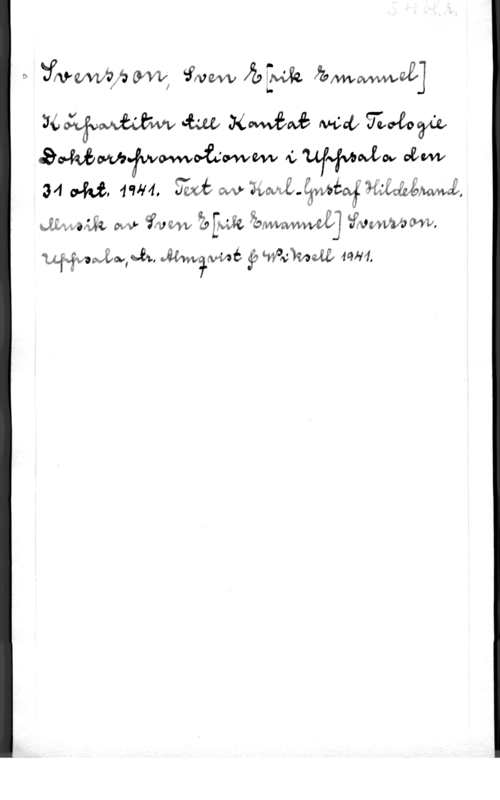 Svensson, Sven E[rik Emanuel]
Körpartitur till Kantat vid Teologie
Doktorspromotionen i Uppsala den
31 okt. 1941. Text av Karl-Gustaf Hildebrand.
Musik av Sven E[rik Emanuel] Svensson.
Uppsala, tr. Almqvist & Wiksell 1941.